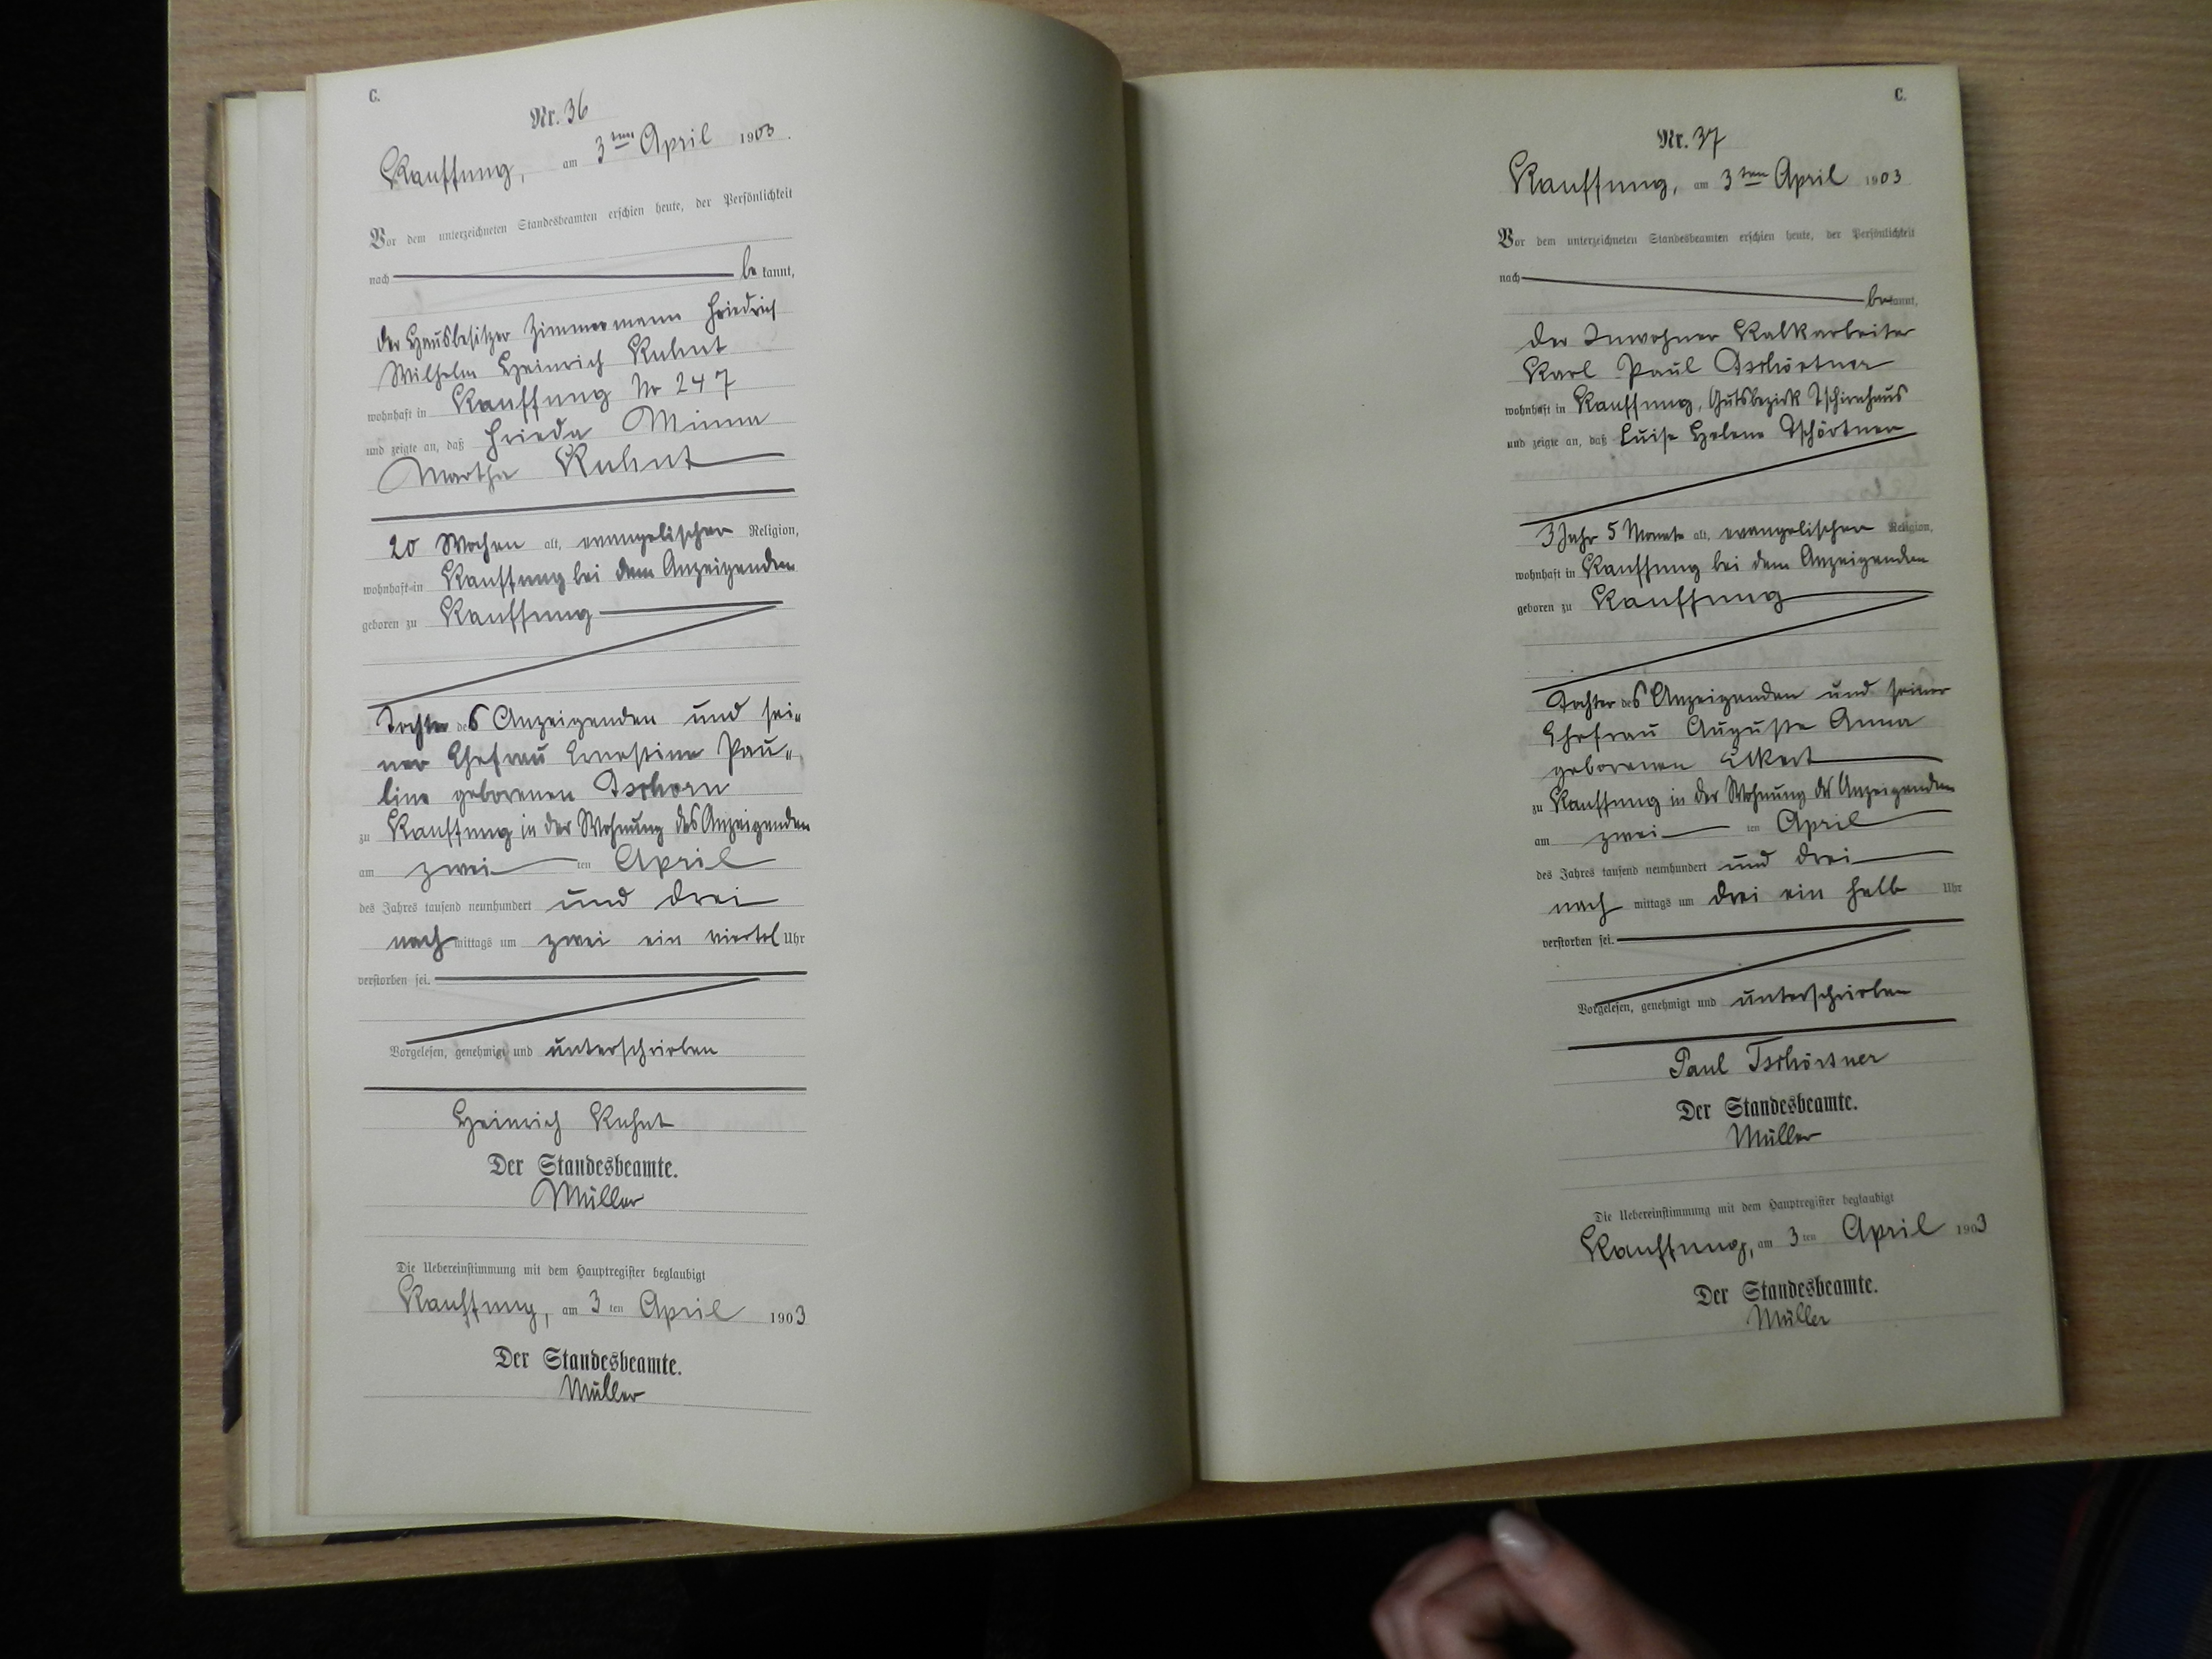 C.
Nr. 36
Kauffung, am 3ten April 1903.
Vor dem unterzeichneten Standesbeamten erschien heute, der Persönlichkeit
nach be kannt,
der Hausbesitzer Zimmermann Friedrich
Wilhelm Heinrich Kuhnt
wohnhaft in Kauffung No 247
und zeigte an, daß Frieda Minna
Martha Kuhnt
20 Wochen alt, evangelischer Religion,
wohnhaft in Kauffung bei dem Anzeigenden
geboren zu Kauffung
Tochter des Anzeigenden und sei-
ner Ehefrau Ernestine Pau-
line geborenen Tschorn
zu Kauffung in der Wohnung des Anzeigenden
am zwei ten April
des Jahres tausend neunhundert und drei
nach mittags um zwei ein viertel Uhr
verstorben sei.
Vorgelesen, genehmigt und unterschrieben
Heinrich Kuhnt
Der Standesbeamte.
Müller
Die Uebereinstimmung mit dem Hauptregister beglaubigt
Kauffung, am 3 ten April 1903
Der Standesbeamte.
Müller
C.
Nr. 37
Kauffung, am 3ten April 1903
Vor dem unterzeichneten Standesbeamten erschien heute, der Persönlichkeit
nach bekannt,
der Inwohner Kalkarbeiter
Karl Paul Tschörtner
wohnhaft in Kauffung, Gutsbezirk Tschirnhaus
und zeigte an, daß Luise Helene Tschörtner
3 Jahr 5 Monate alt, evangelischer Religion,
wohnhaft in Kauffung bei dem Anzeigenden
geboren zu Kauffung
Tochter des Anzeigenden und seiner
Ehefrau Auguste Anna
geborenen Elkert
zu Kauffung in der Wohnung des Anzeigenden
am zwei ten April
des Jahres tausend neunhundert und drei
nach mittags um drei ein halb Uhr
verstorben sei.
Vorgelesen, genehmigt und unterschrieben
Paul Tschörtner
Der Standesbeamte.
Müller
Die Uebereinstimmung mit dem Hauptregister beglaubigt
Kauffung, am 3 ten April 1903
Der Standesbeamte.
Müller